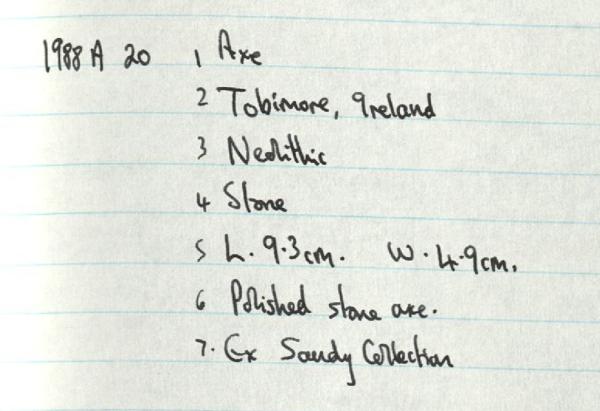 1988 A 20 1 Axe
2 Tobimore, Ireland
3 Neolithic
4 Stone
5 L. 9.3cm. W. 4.9cm.
6 Polished stone axe.
7. Ex Saudy Collection